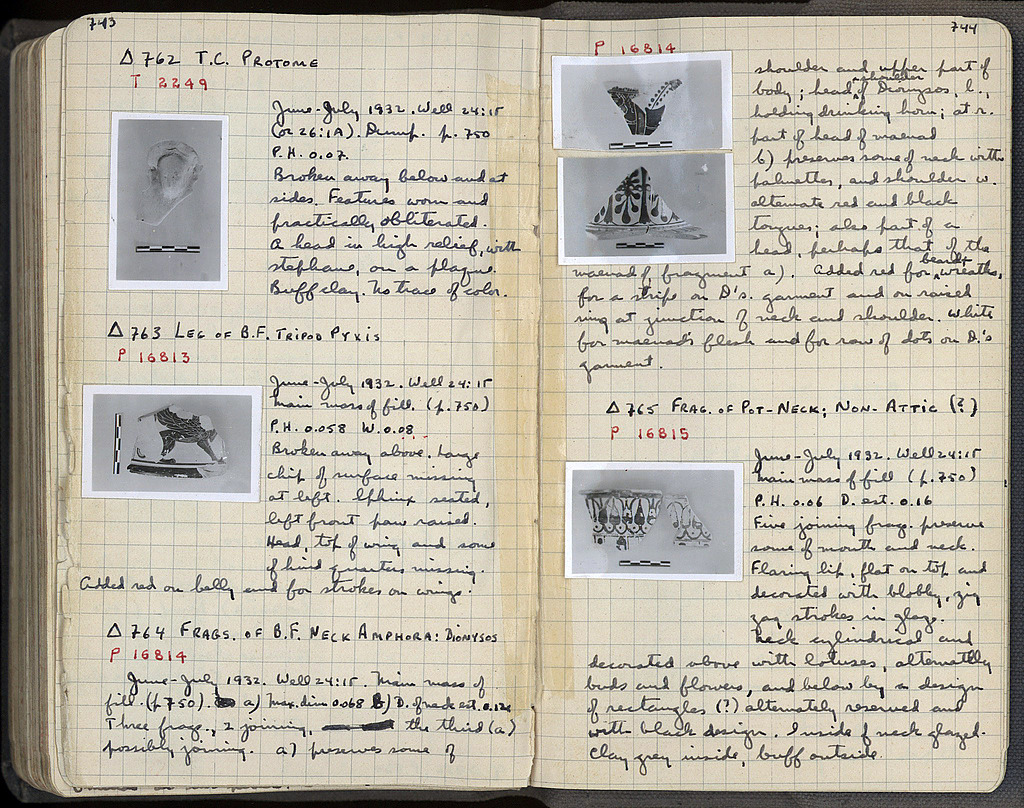 743
Δ 762 T.C. PROTOME
T 2249
June-July 1932. Well 24:15
(or 26:1A). Dump. p. 750
P.H. 0.07.
Broken away below and at
sides. Features worn and
practically obliterated.
A head in high relief, with
stephane, on a plaque.
Buff clay. No trace of color.
Δ 763 LEG OF B.F. TRIPOD PYXIS
P 16813
June-July 1932. Well 24:15
main mass of fill. (p. 750)
P.H. 0.058 W. 0.08
Broken away above. Large
chip of surface missing
at left. Sphinx seated,
left front paw raised.
Head, top of wing and some
of hind quarters missing.
Added red on belly and for strokes on wings.
Δ 764 FRAGS. OF B.F. NECK AMPHORA: DIONYSOS
P 16814
June-July 1932. Well 24:15. Main mass of
fill. (p. 750). a) Max. dim 0.068 b) D. of neck est. 0.12
Three frag., 2 joining, the third (a)
possibly joining. a) preserves some of
744
P 16814
shoulder and upper part of
body; head, shoulder of Dionysos, l.,
holding drinking horn; at r.
part of head of maenad
b) preserves some of neck with
palmettes, and shoulder w.
alternate red and black
tongues; also part of a
head, perhaps that of the
maenad of fragment a). Added red for beard, wreaths,
for a stripe on D's. garment and on raised
ring at junction of neck and shoulder. White
for maenad's flesh and for row of dots on D.'s
garment.
Δ 765 FRAG. OF POT-NECK; NON-ATTIC (?)
P 16815
June-July 1932. Well 24:15
main mass of fill (p. 750)
P.H. 0.06 D. est. 0.16
Five joining frags. preserve
some of mouth and neck.
Flaring lip, flat on top and
decorated with blobby, zig
zag strokes in glaze.
Neck cylindrical and
decorated above with lotuses, alternately
buds and flowers, and below by a design
of rectangles (?) alternately reserved and
with black design. Inside of neck glazed.
Clay grey inside, buff outside.